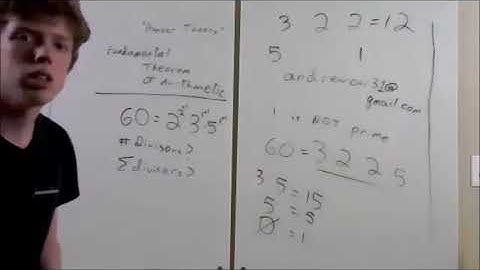 "Number Theory"
Fundamental
Theorem
of Arithmetic
60 = 2² 3¹ 5¹
# Divisors?
Σ divisors?
3 2 2 = 12
5 1
gmail.com
1 is NOT prime
60 = 3 2 2 5
3 5 = 15
5 = 5
∅ = 1